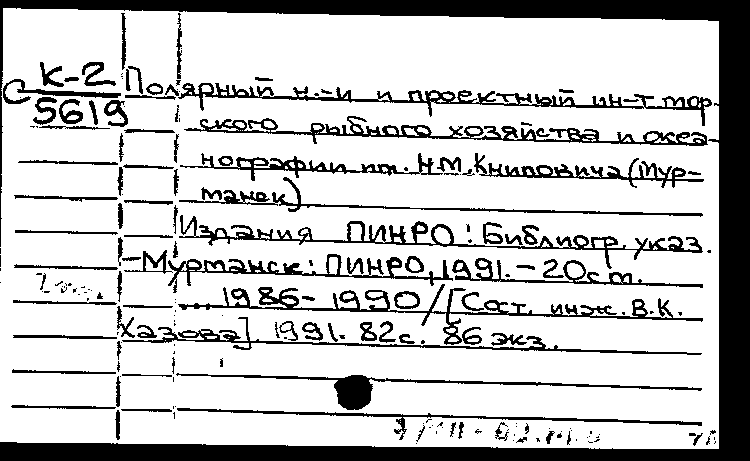 С К-2
5619
Полярный н.-и и проектный ин-т мор-
ского рыбного хозяйства и океа-
нографии им. Н.М. Книповича (Мур-
манск)
Издания ПИНРО: Библиогр. указ.
-Мурманск: ПИНРО, 1991. - 20 см.
... 1986-1990/[Сост. инж. В.К.
Хазова]. 1991. 82с. 86 экз.